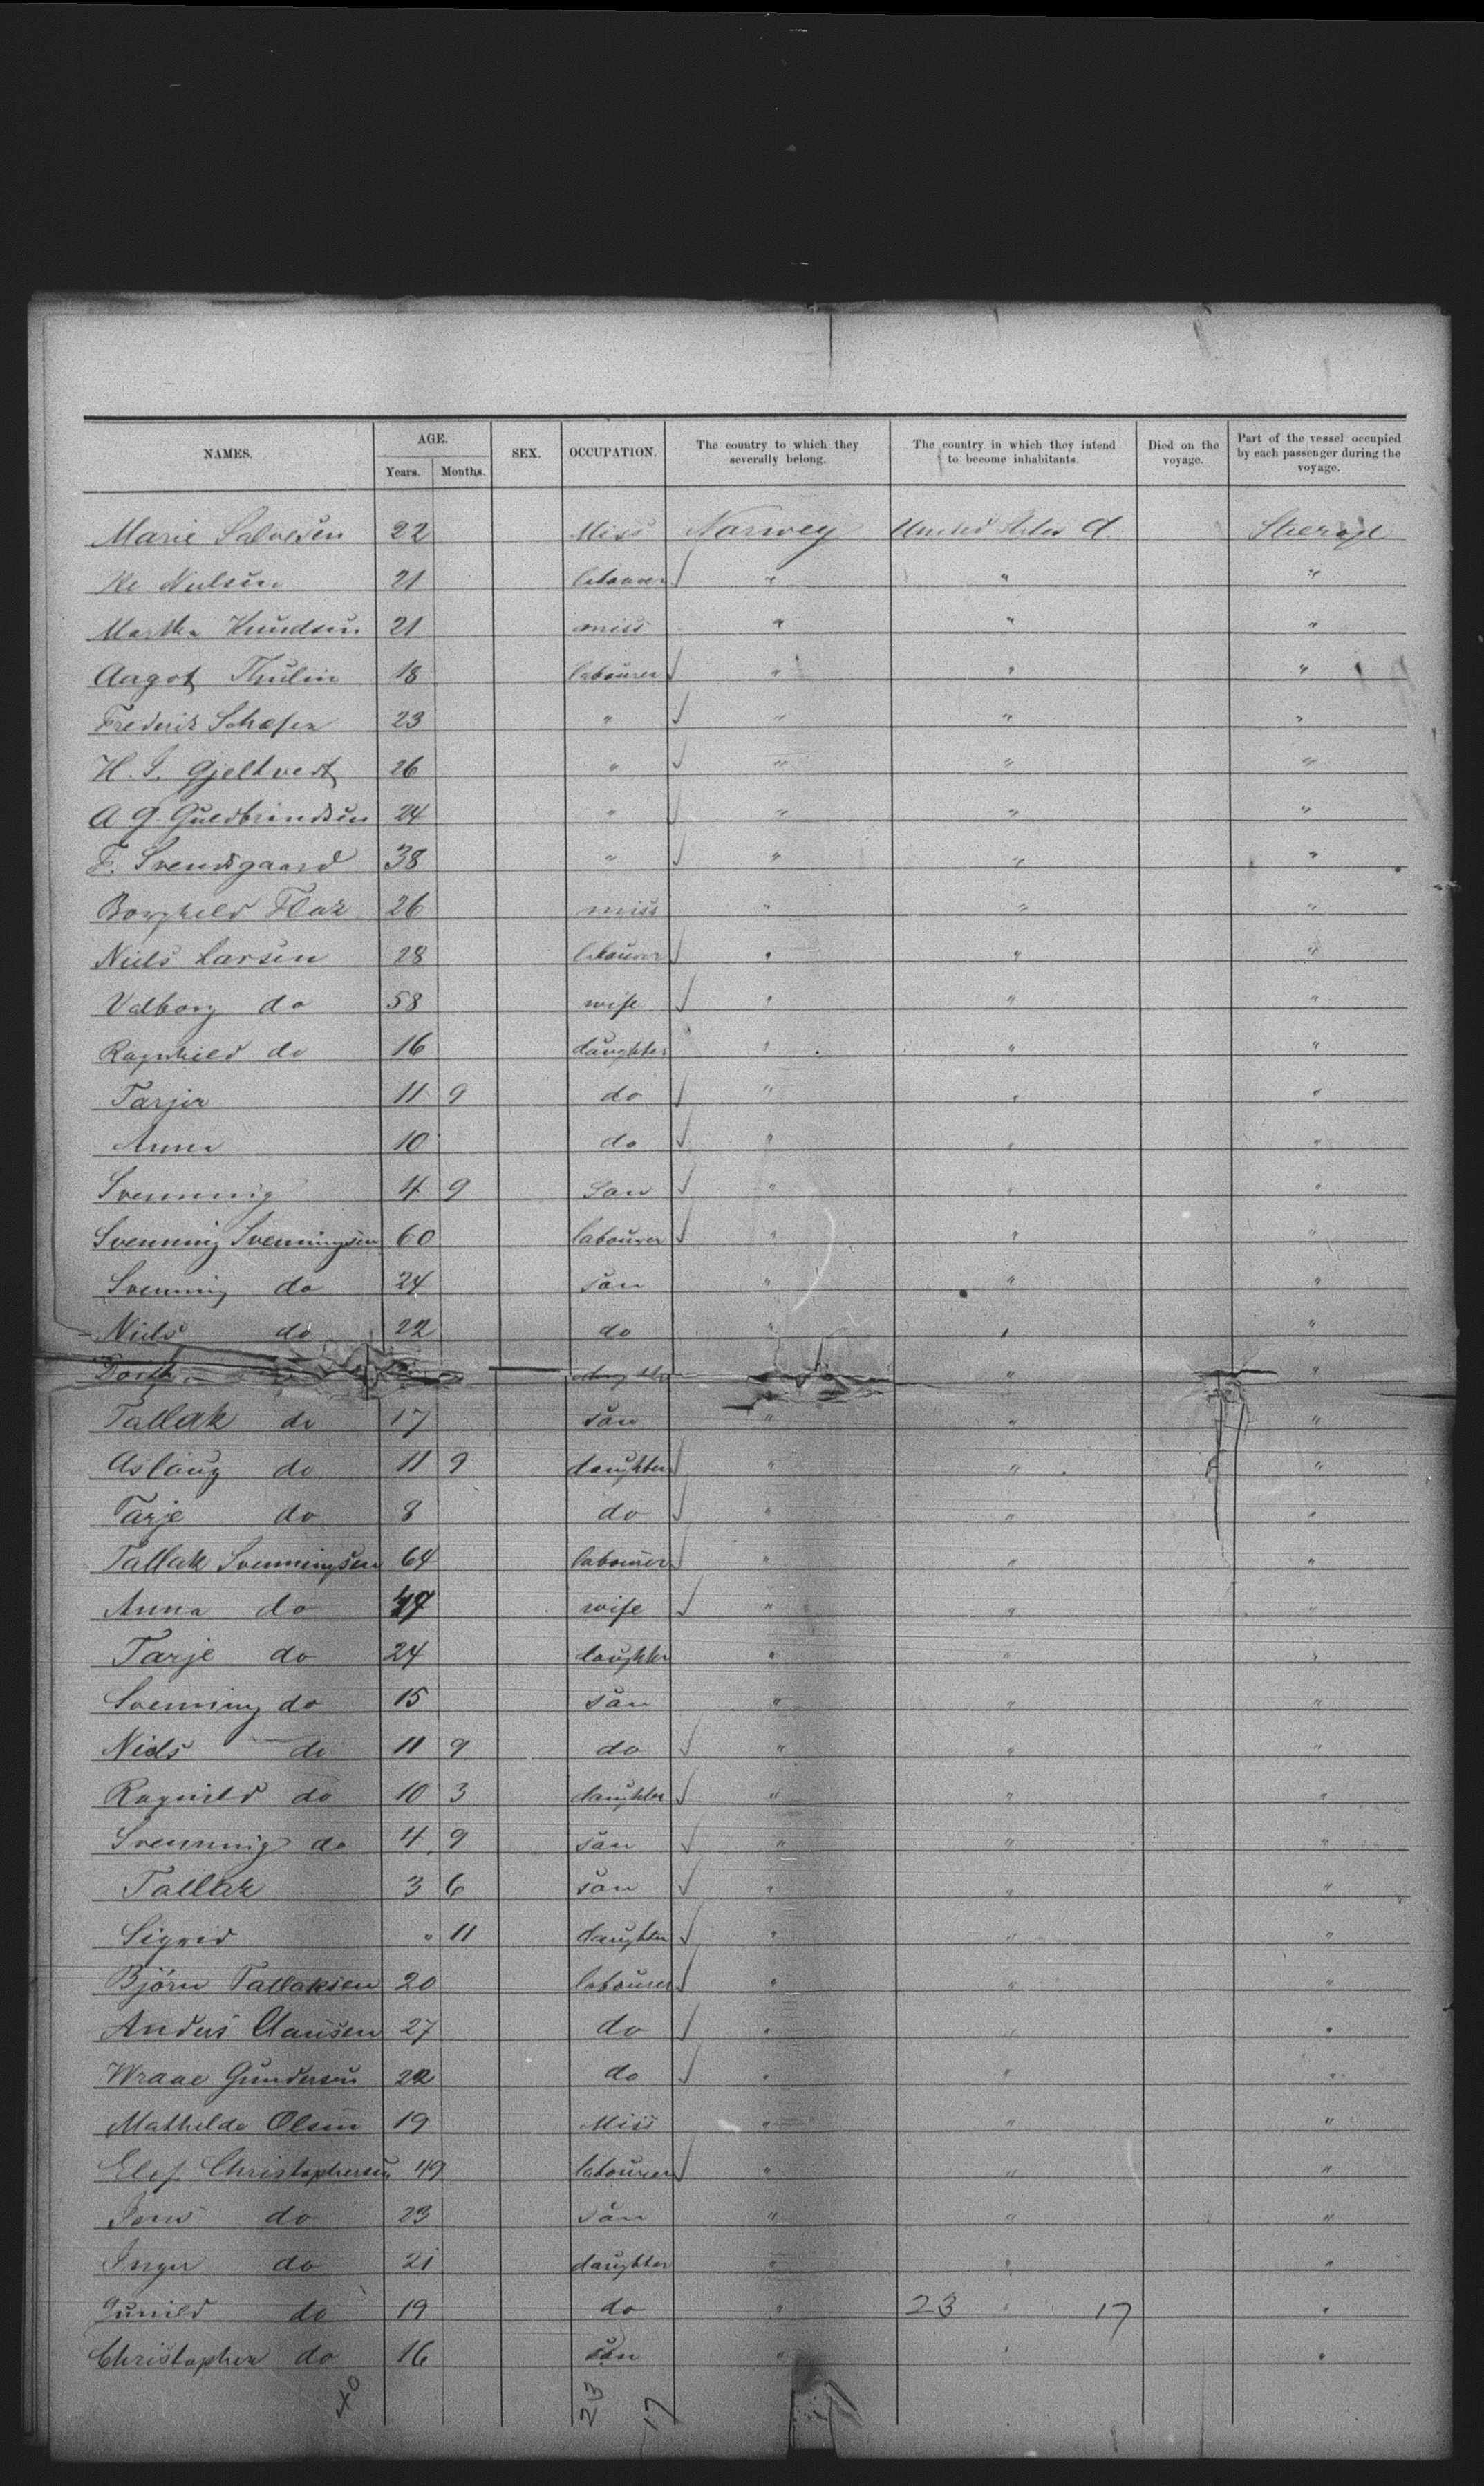 NAMES. AGE. Years. Months. SEX. OCCUPATION. The country to which they severally belong. The country in which they intend to become inhabitants. Died on the voyage. Part of the vessel occupied by each passenger during the voyage.
Marie Salvesen 22 Miss Norwey United States A. Steerage
Nielsen 21 labourer √ " " "
Martha Knudsen 21 miss " " "
Aagot Thulin 18 labourer √ " " "
Frederik Schafer 23 " √ " " "
H. S. Gjeltvedt 26 " √ " " "
A G. Guldbrandsen 24 " √ " " "
F. Svendsgaard 38 " √ " " "
Borghild Flaa 26 miss " " "
Niels Larsen 28 labourer √ " " "
Valborg do 58 wife √ " " "
Ragnhild do 16 daughter " " "
Tarjer 11 9 do √ " " "
Anna 10 do √ " " "
Svenning 4 9 Son √ " " "
Svenning Svenningsen 60 labourer √ " " "
Svenning do 24 son " " "
Niels do 22 do " " "
" "
Tallak do 17 son " " "
Aslaug do 11 9 daughter √ " " "
Tarje do 8 do √ " " "
Tallak Svenningsen 64 labourer √ " " "
Anna do wife √ " " "
Tarje do 24 daughter " " "
Svenning do 15 son " " "
Niels do 11 9 do √ " " "
Ragnild do 10 3 daughter √ " " "
Svenning do 4 9 son √ " " "
Tallak 3 6 son √ " " "
Sigrid " 11 daughter √ " " "
Björn Tallaksen 20 labourer √ " " "
Anders Clausen 27 do √ " " "
Wraae Gundersen 22 do √ " " "
Mathilde Olsen 19 Miss " " "
Elef Christophersen 49 labourer √ " " "
Jens do 23 son " " "
Inger do 21 daughter " " "
Gunild do 19 do " 23 " 17 "
Christopher do 16 son " " "
40 23 17